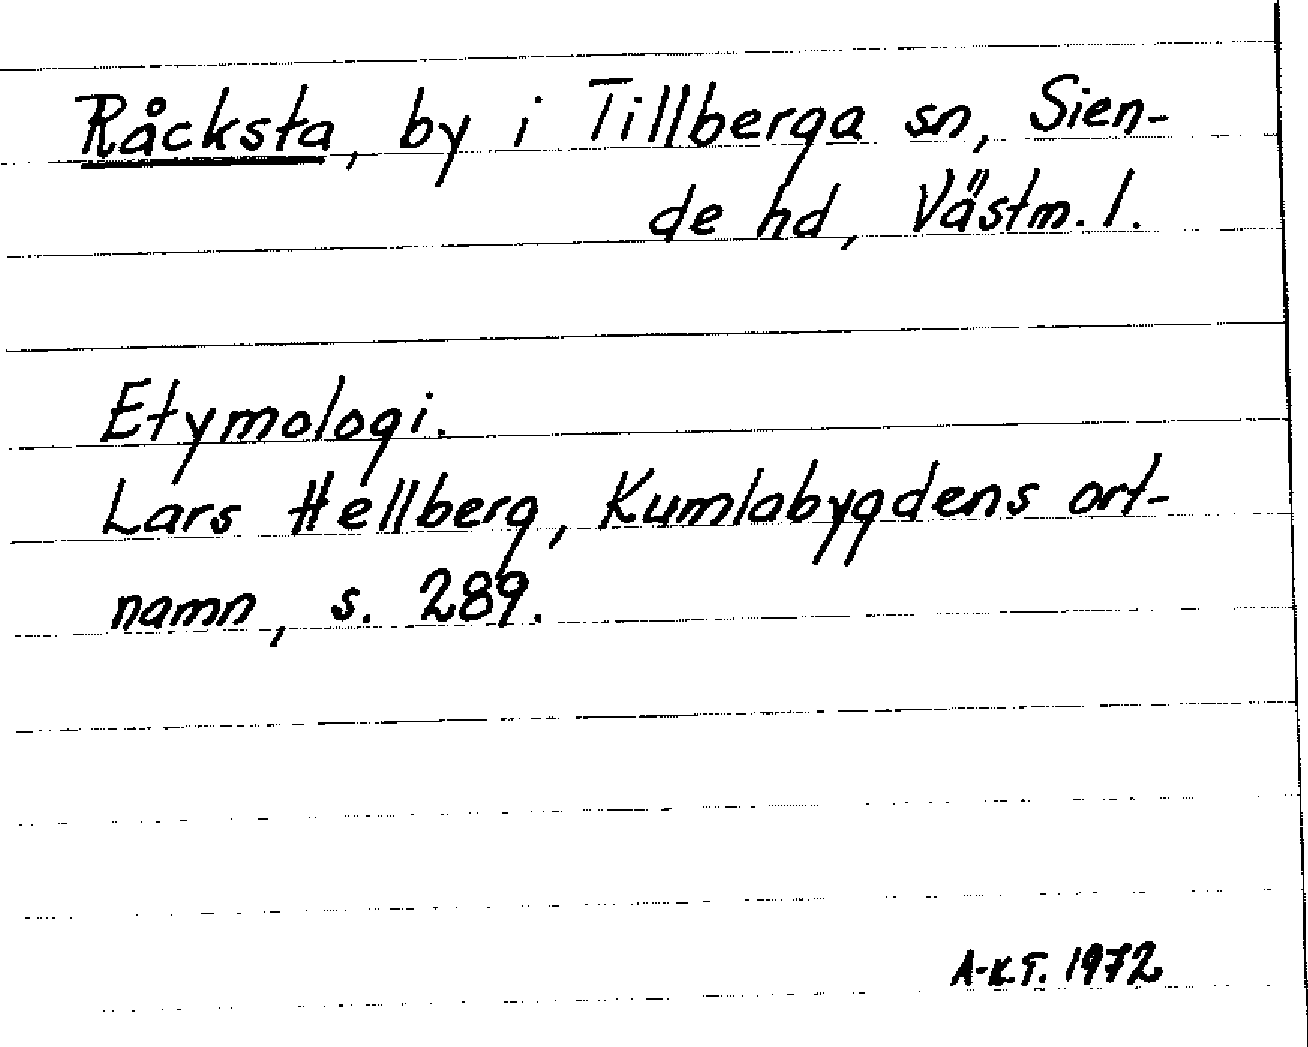 Råcksta, by i Tillberga sn, Sien-
de hd, Västm. l.
Etymologi.
Lars Hellberg, Kumlabygdens ort-
namn, s. 289.
A-K.T. 1972